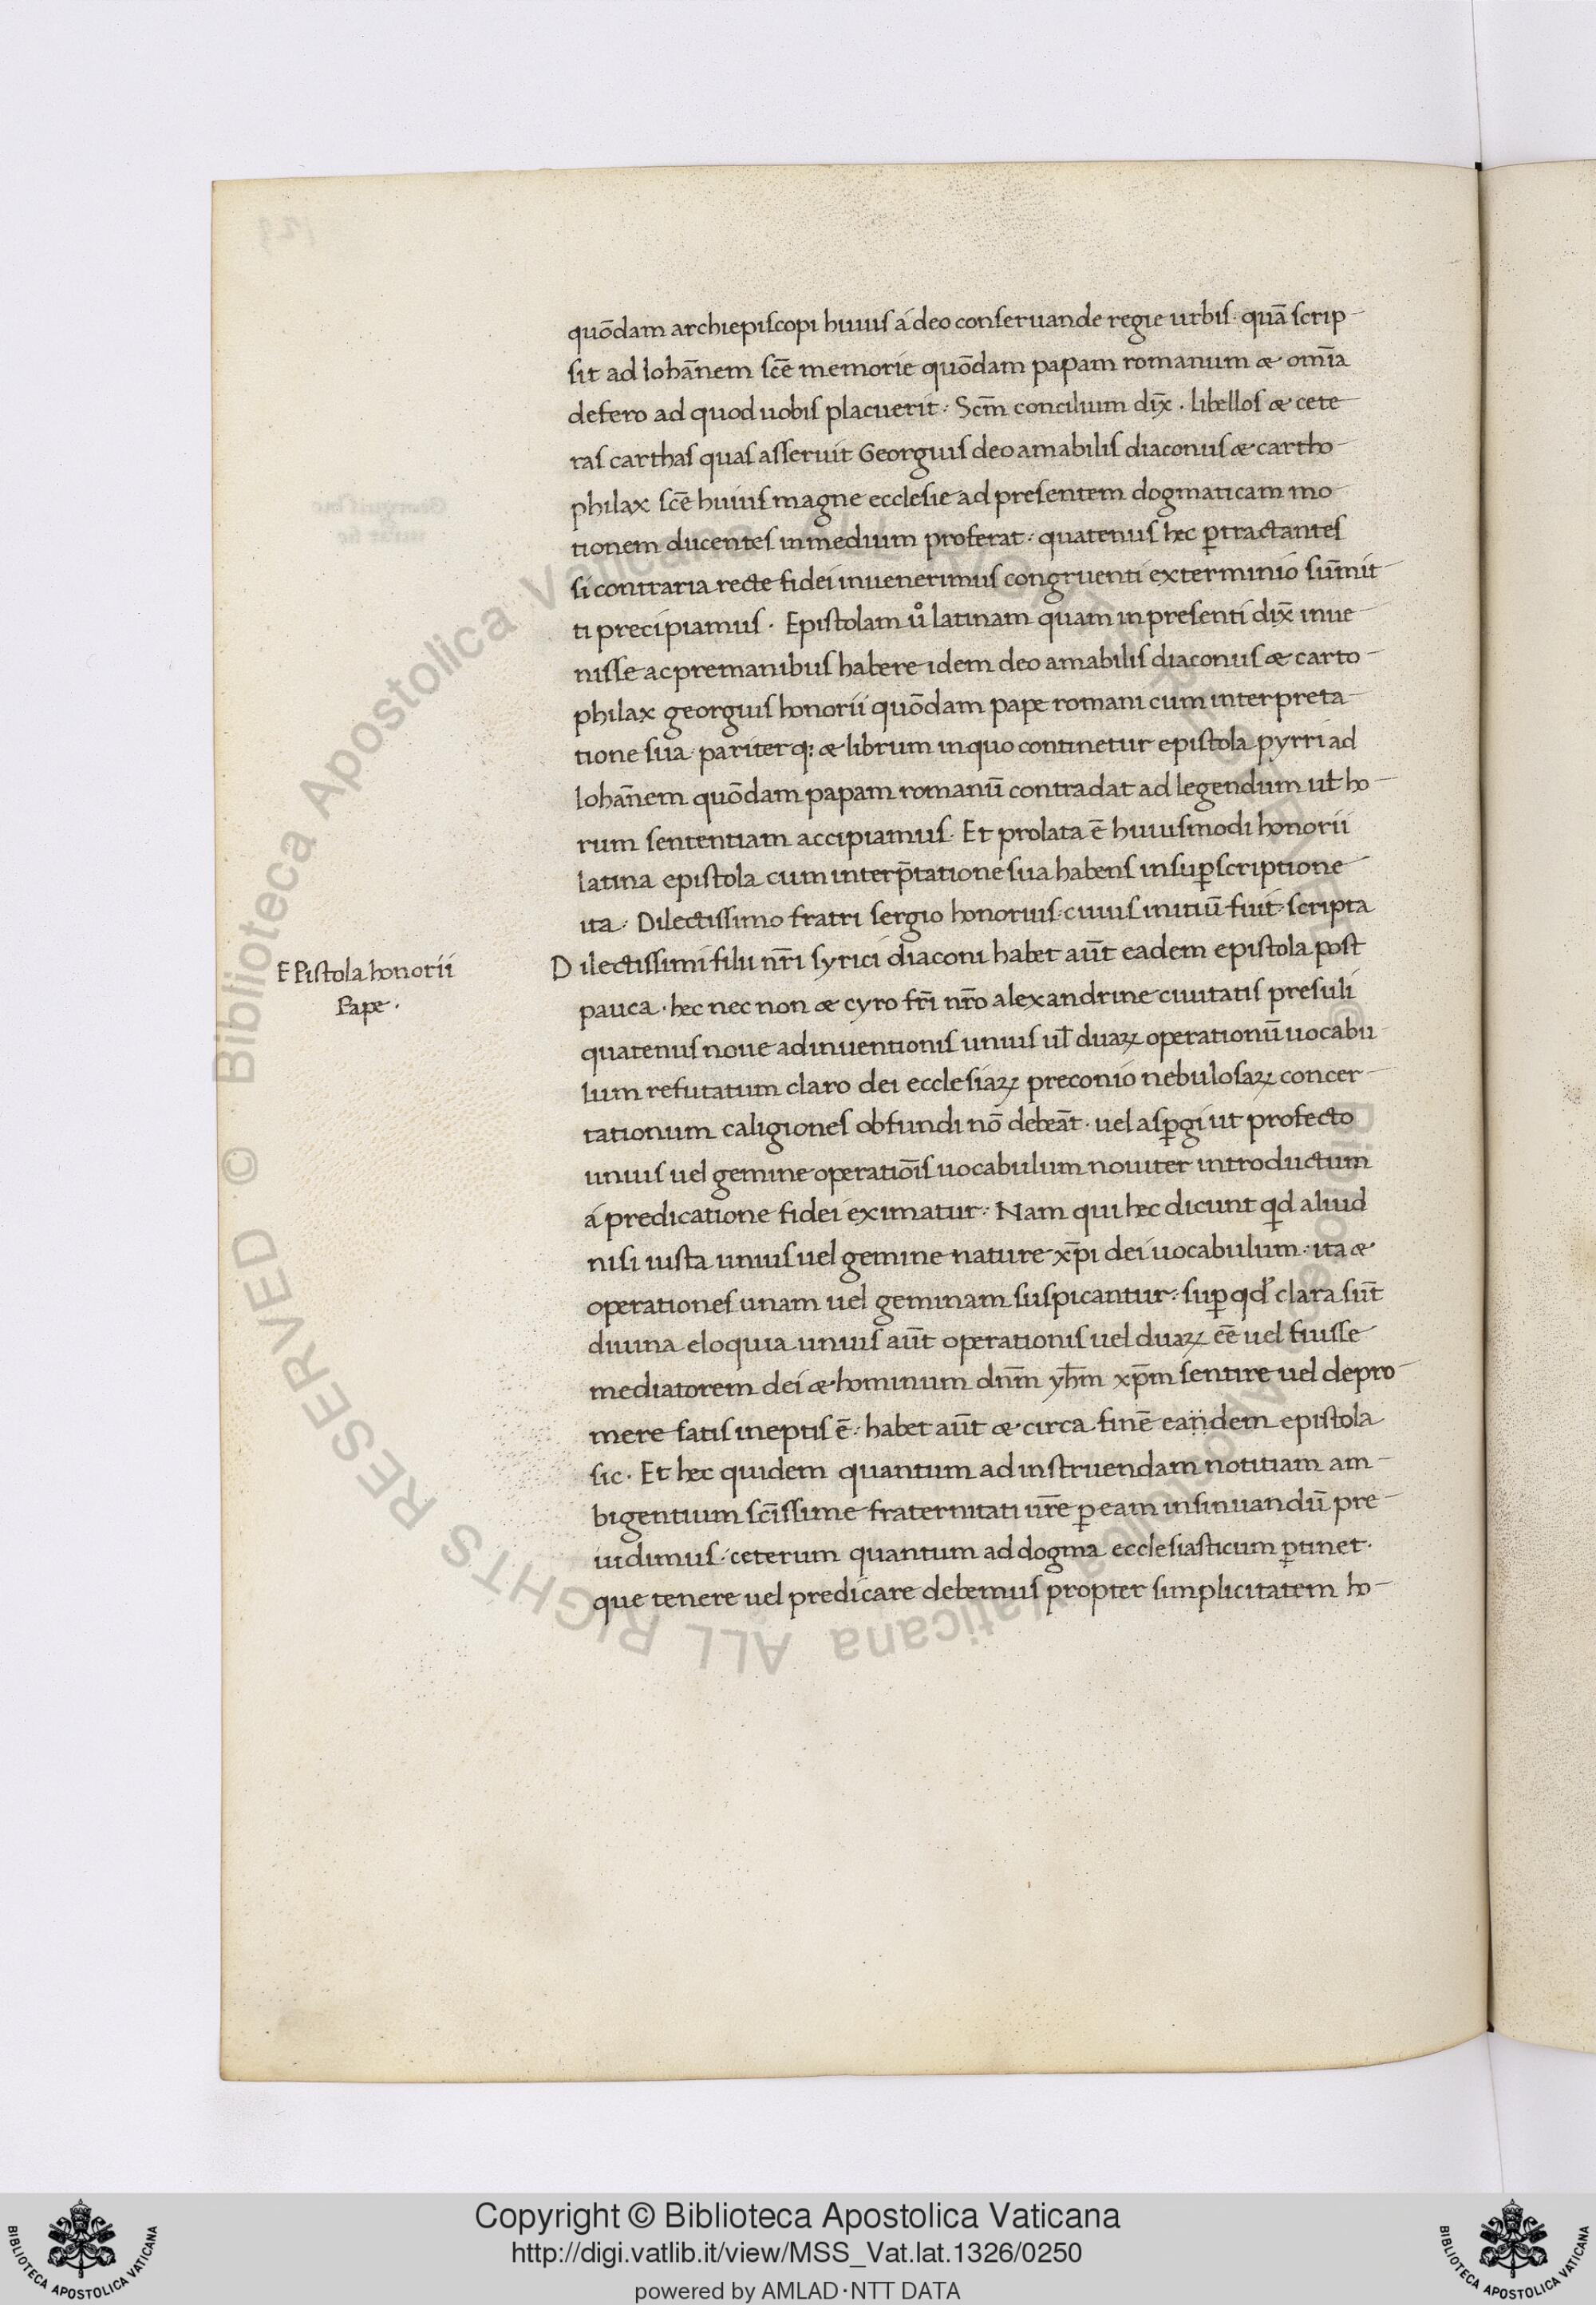 quōdam archiepiscopi huius á deo conseruande regie urbis · quā scrip-
sit ad Iohānem scē memorie quōdam papam romanum æ omīa
defero ad quod uobis placuerit : Scm̄ concilium dix̄ . libellos æ cete-
ras carthas quas asseruit Georgius deo amabilis diaconus æ cartho-
philax scē huius magne ecclesie ad presentem dogmaticam mo-
tionem ducentes in medium proferat : quatenus hec ꝑtractantes
si contraria recte fidei inuenerimus congruenti exterminio sūmit-
ti precipiamus . Epistolam uͦ latinam quam in presenti dix̄ inue-
nisse ac premanibus habere idem deo amabilis diaconus æ carto-
philax georgius honorii quōdam pape romani cum interpreta-
tione sua pariter q; æ librum in quo continetur epistola pyrri ad
Iohānem quōdam papam romanū contradat ad legendum ut ho-
rum sententiam accipiamus . Et prolata ē huiusmodi honorii
latina epistola cum interp̄tatione sua habens insuꝑscriptione
ita : Dilectissimo fratri sergio honorius · cuius initiū fuit · scripta
EPistola honorii
Pape .
Dilectissimi filii nr̄i syrici diaconi habet aūt eadem epistola post
pauca · hec nec non æ cyro fr̄i nr̄o alexandrine ciuitatis presuli
quatenus noue adinuentionis unius ul̄ duaꝝ operationū uocabu-
lum refutatum claro dei ecclesiaꝝ preconio nebulosaꝝ concer-
tationum caligiones obfundi nō debeāt · uel asꝑgi ut profecto
unius uel gemine operatiōis uocabulum nouiter introductum
á predicatione fidei eximatur : Nam qui hec dicunt qd aliud
nisi iusta unius uel gemine nature xp̄i dei uocabulum · ita æ
operationes unam uel geminam suspicantur : suꝑ qd̓ clara sūt
diuina eloquia unius aūt operationis uel duaꝝ eē uel fuisse
mediatorem dei æ hominum dnm̄ yhm̄ xp̄m sentire uel depro-
mere satis ineptis ē : habet aūt æ circa finē eandem epistola
sic . Et hec quidem quantum ad instruendam notitiam am-
bigentium scīssime fraternitati ur̄e ꝑ eam insinuandū pre-
iudimus : ceterum quantum ad dogma ecclesiasticum ꝑtinet .
que tenere uel predicare debemus propter simplicitatem ho-
Copyright © Biblioteca Apostolica Vaticana
http://digi.vatlib.it/view/MSS_Vat.lat.1326/0250
powered by AMLAD·NTT DATA